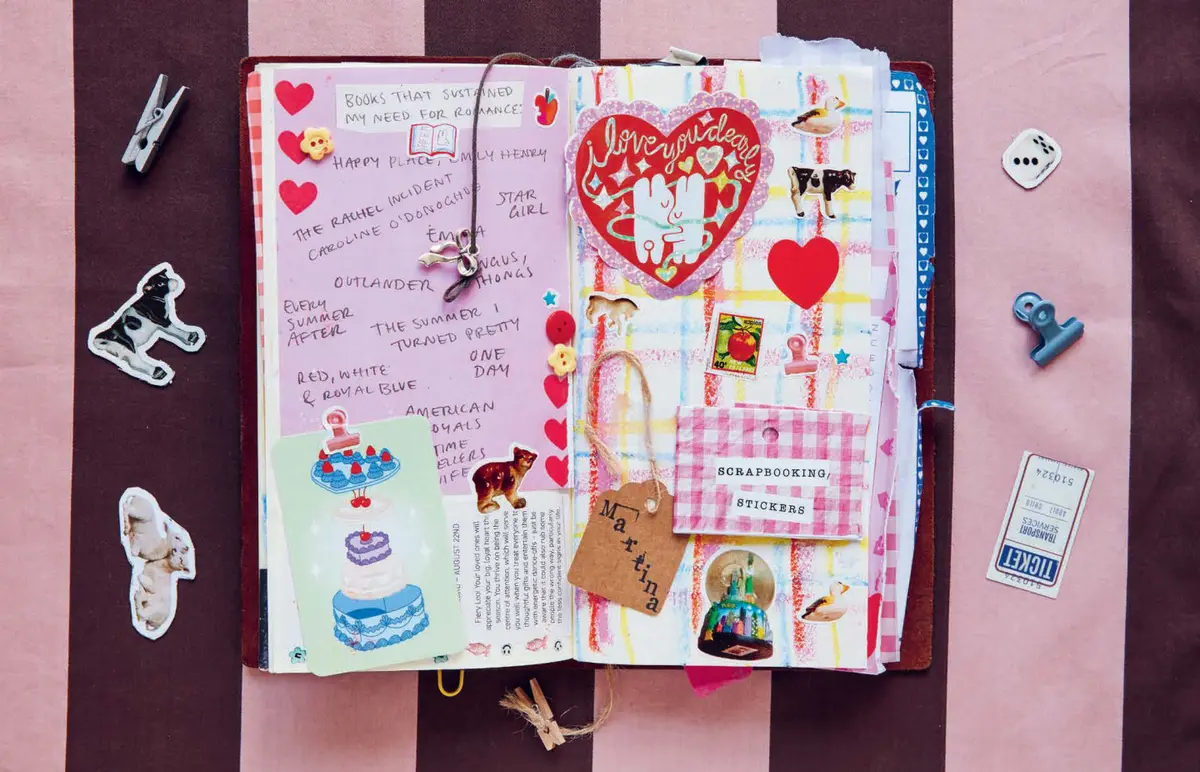 BOOKS THAT SUSTAINED
MY NEED FOR ROMANCE:
HAPPY PLACE, EMILY HENRY
THE RACHEL INCIDENT
CAROLINE O'DONOGHUE
STAR
GIRL
OUTLANDER
NGUS,
THONGS
EVERY
SUMMER
AFTER
THE SUMMER I
TURNED PRETTY
RED, WHITE
& ROYAL BLUE.
ONE
DAY
AMERICAN
OYALS
TIME
ELLERS
WIFE
AUGUST 22ND
Fiery Leo! Your loved ones will
appreciate your big, loyal heart this
season. You thrive on being the
centre of attention, which will serve
you well when you treat everyone to
thoughtful gifts and entertain them
with energetic dance-offs – just be
aware that it could also rub some
people the wrong way, particularly
the less confident signs in your life.
i love you dearly
40
SCRAPBOOKING/
STICKERS
Martina
510324
TRANSPORT
SERVICES
TICKET
510324